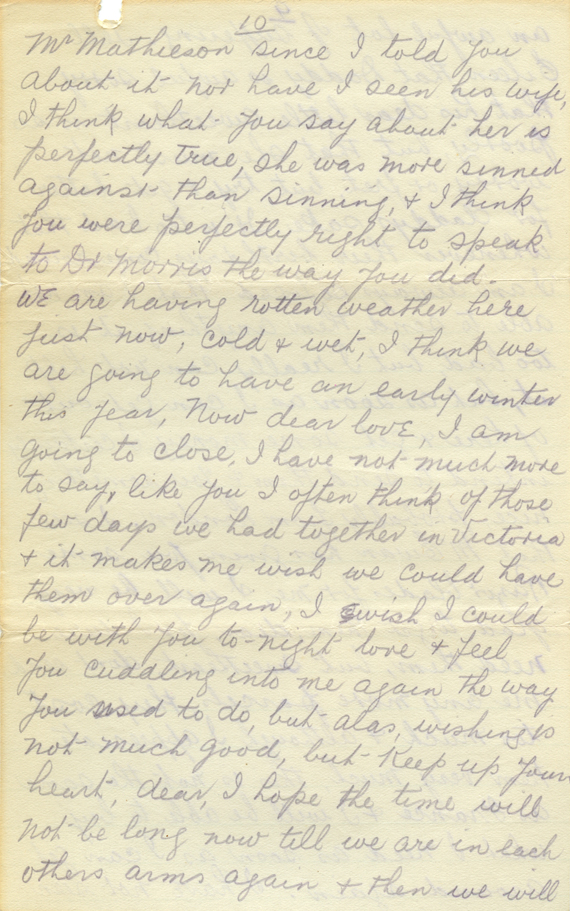 10
Mr Mathieson since I told you
about it nor have I seen his wife,
I think what you say about her is
perfectly true, she was more sinned
against than sinning, & I think
you were perfectly right to speak
to Dr Morris the way you did.
WE are having rotten weather here
just now, cold & wet, I think we
are going to have an early winter
this year, Now dear lovE, I am
going to close, I have not much more
to say, like you I often think of those
few days we had together in Victoria
& it makes me wish we could have
them over again, I wish I could
be with you to-night love & feel
you cuddling into me again the way
you used to do, but alas, wishing is
not much good, but keep up your
heart, dear, I hope the time will
not be long now till we are in each
others arms again & then we will